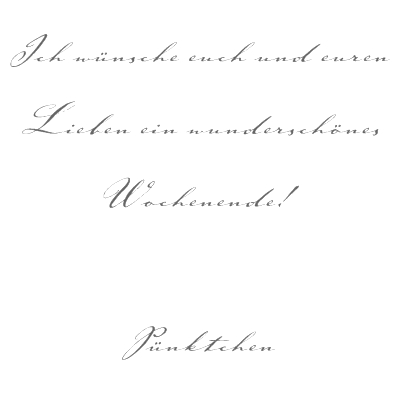 Ich wünsche euch und euren
Lieben ein wunderschönes
Wochenende!
Pünktchen